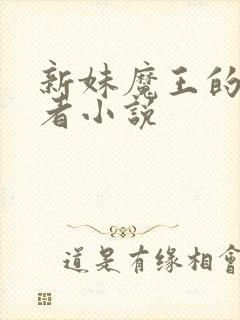 新妹魔王的
者小説
道是有缘相會